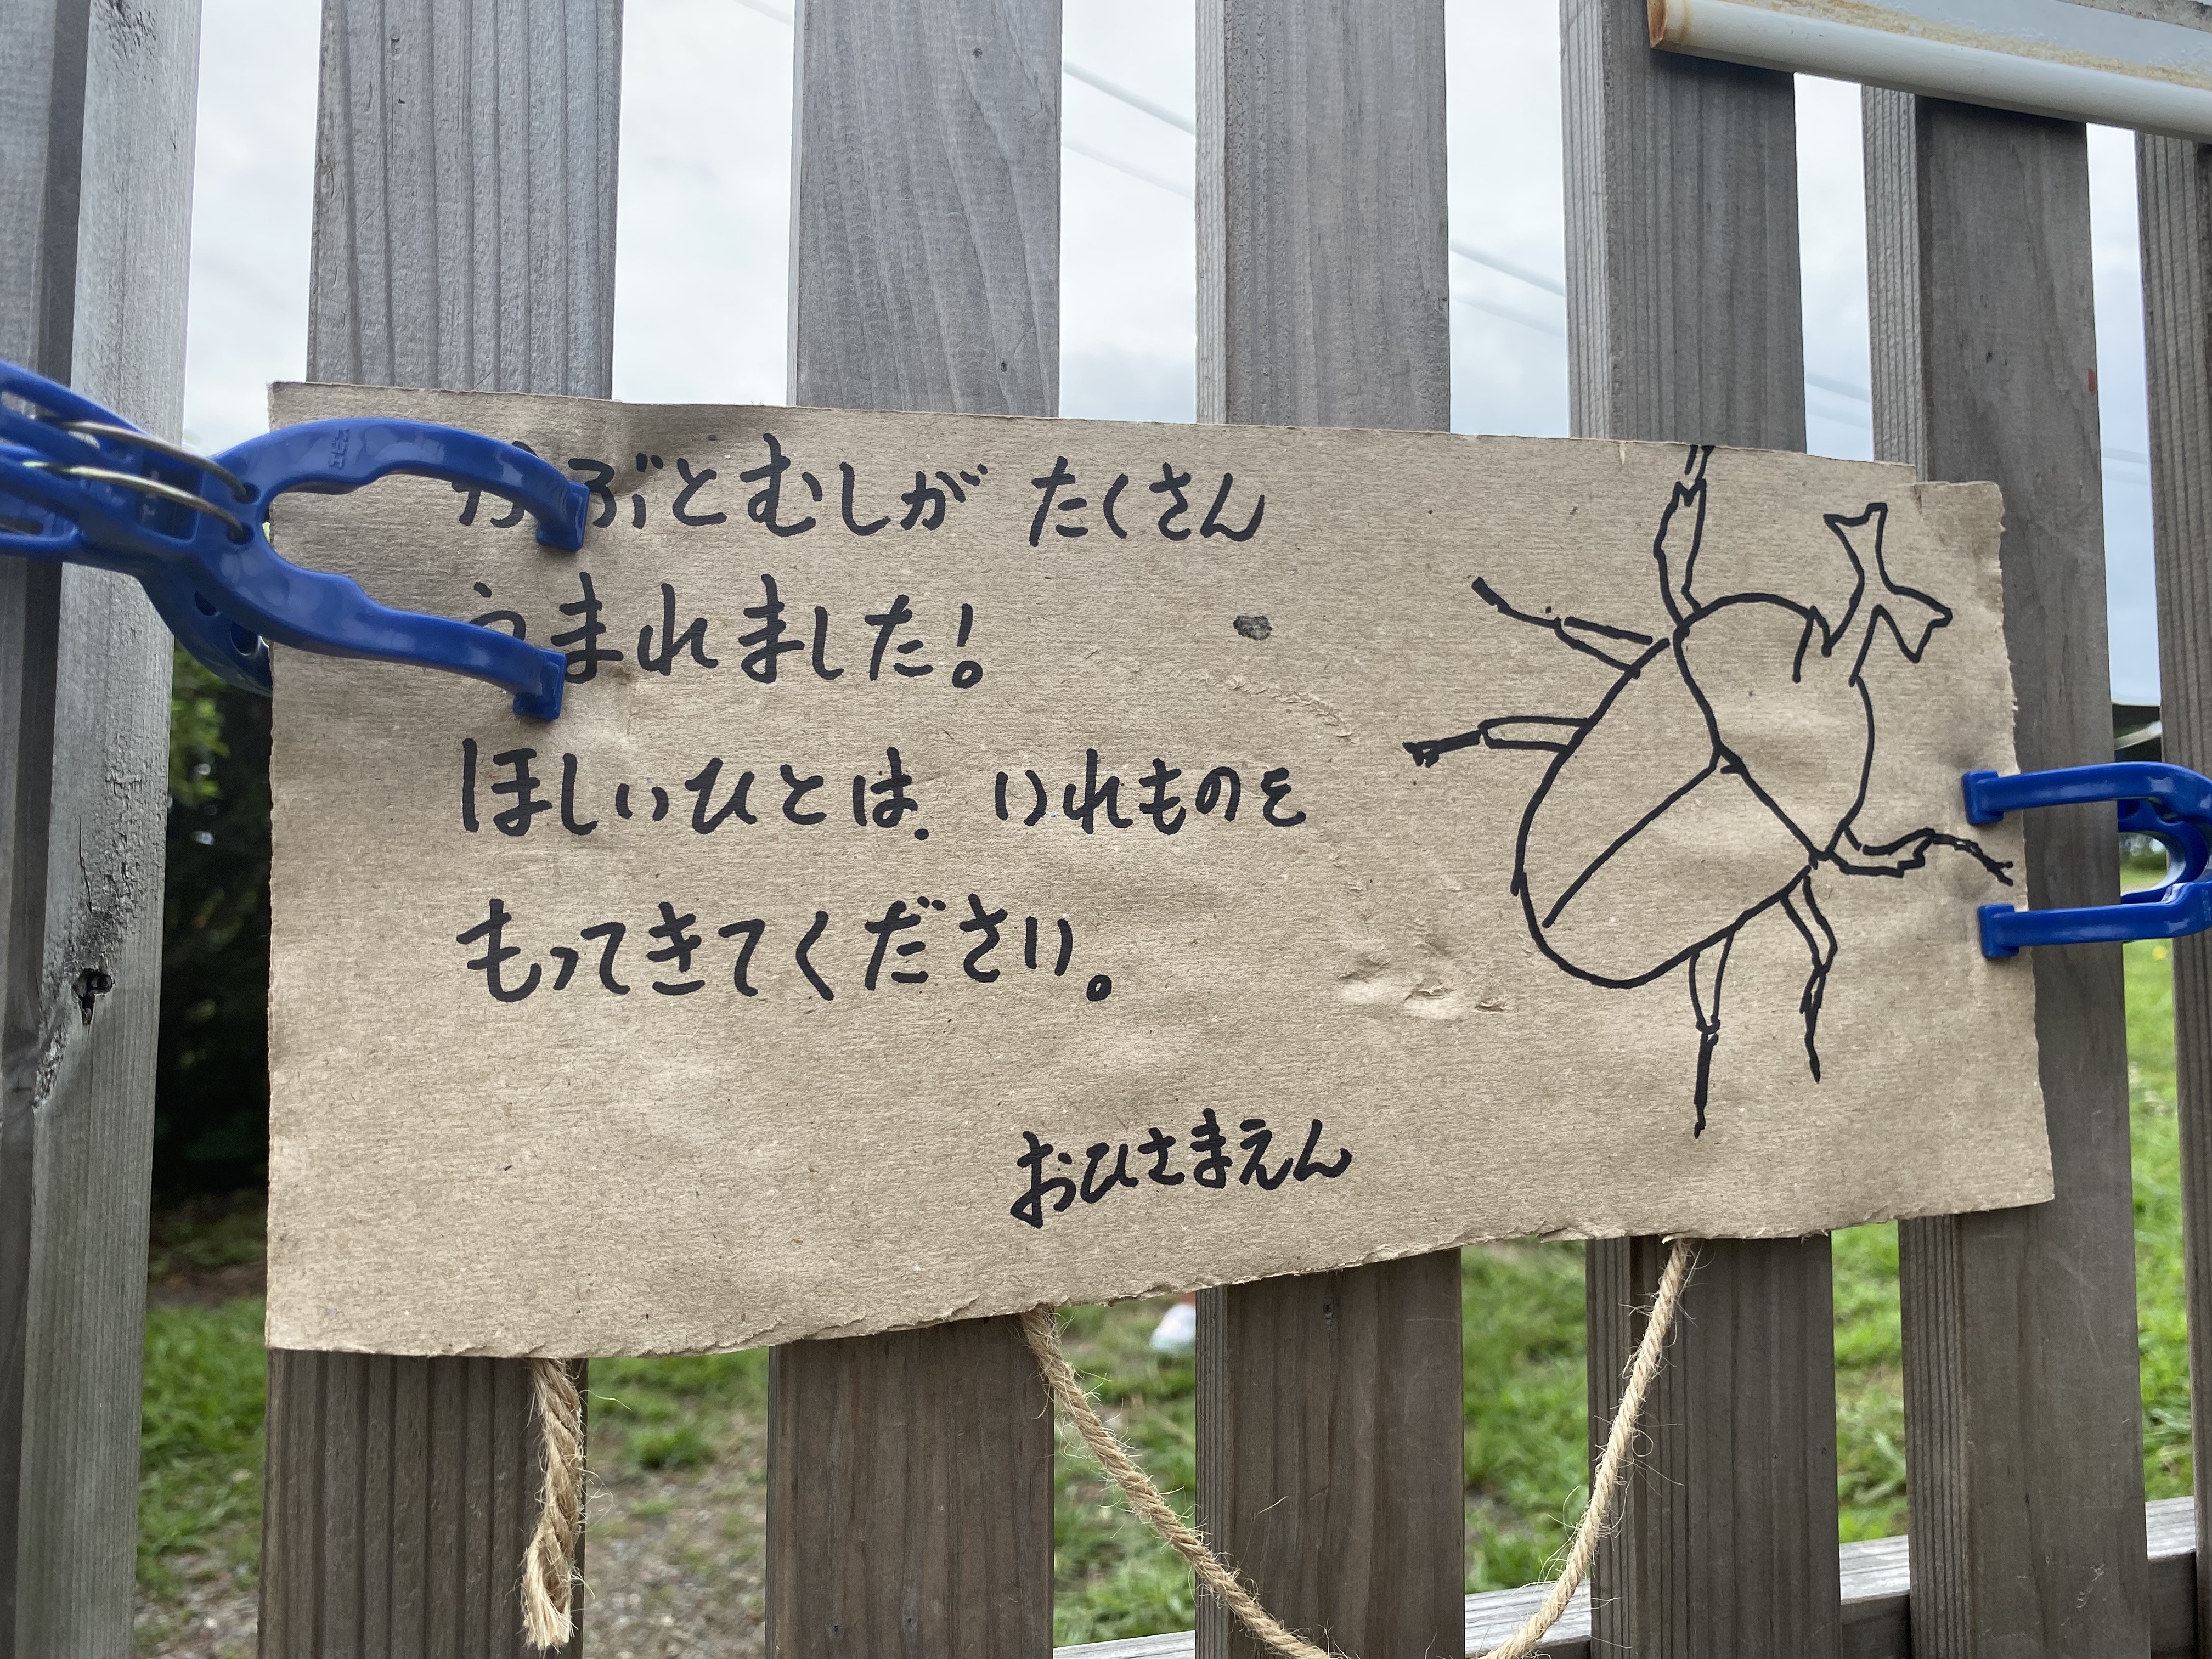 かぶとむしが たくさん
うまれました!
ほしいひとは、いれものを
もってきてください。
おひさまえん